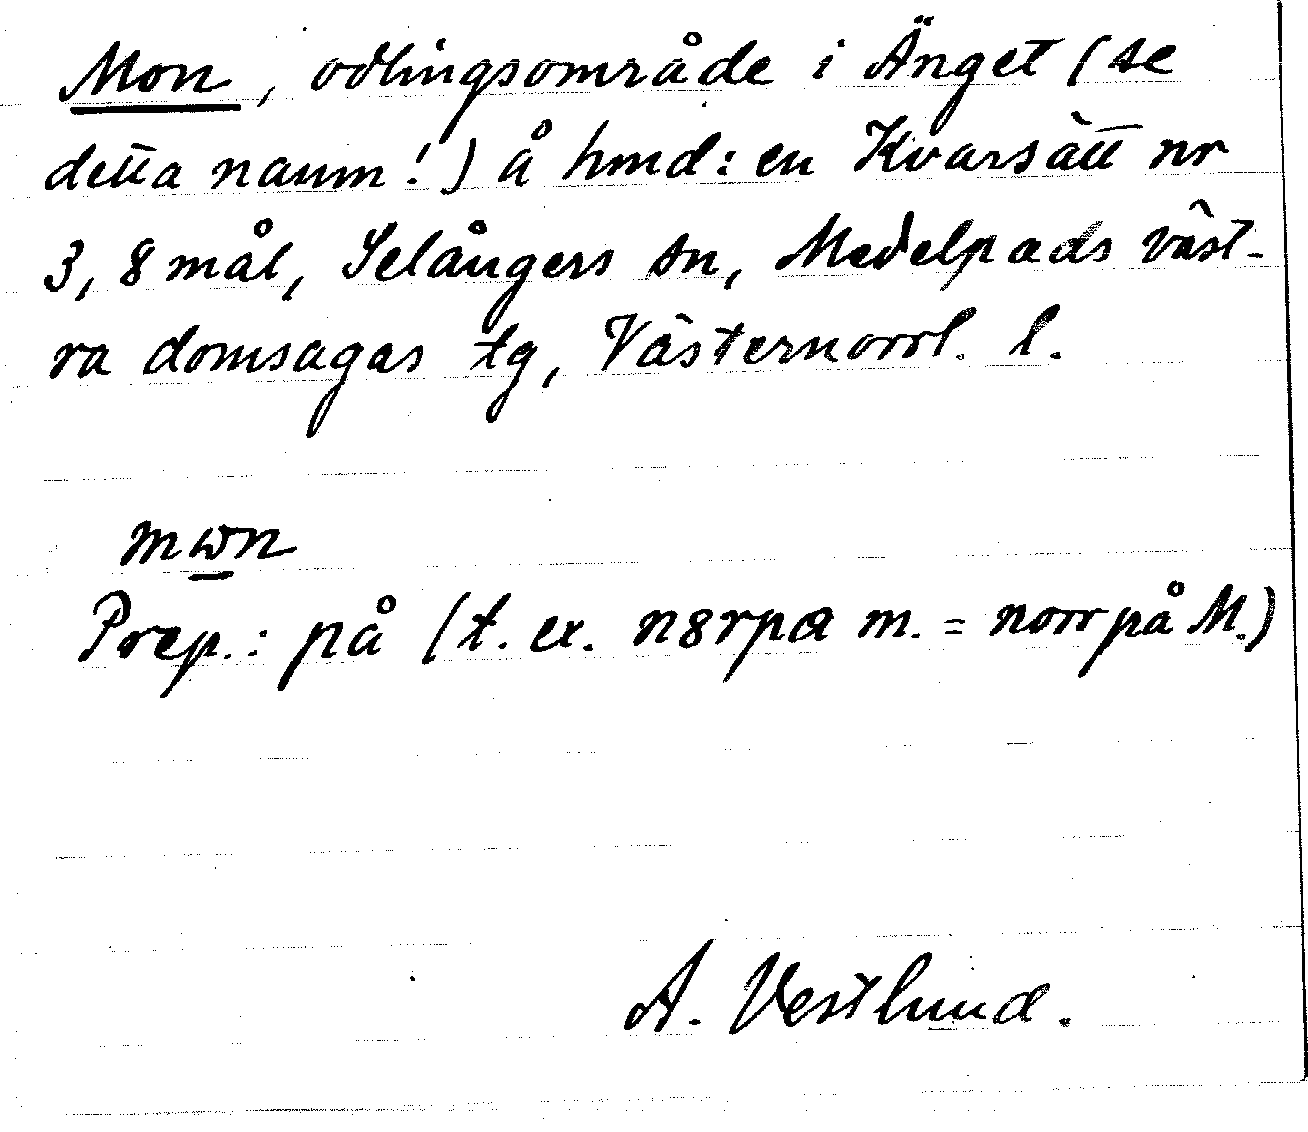 Mon, odlingsområde i Änget (se
detta namn!) å hmd: en Kvarsätt nr
3, 8 mål, Selångers sn, Medelpads väst-
ra domsagas tg, Västernorrl. l.
mωn
Prep.: på (t. ex. n8rpa m. = norr på M.)
A. Vestlund.